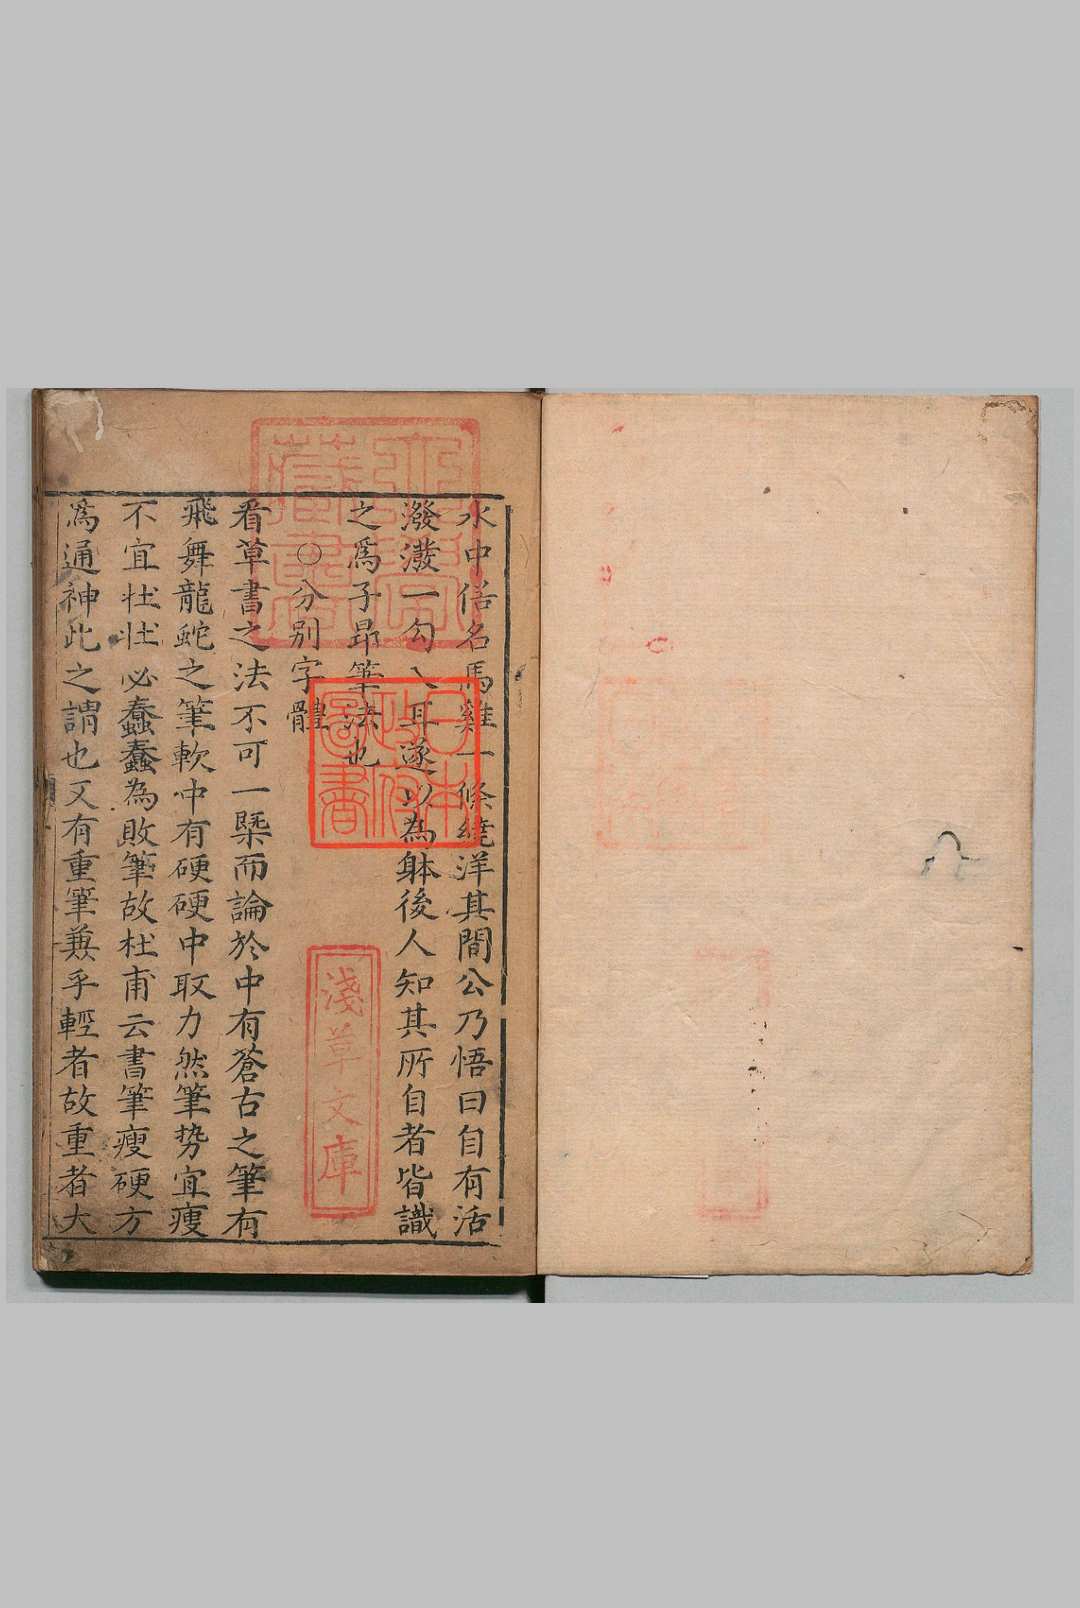 水中俗名馬雞一條繞洋其間公乃悟曰自有活
潑潑一勾入耳遂以為躰後人知其所自者皆識
之爲子昂筆法也
○分别字體
看草書之法不可一槩而論於中有蒼古之筆有
飛舞龍蛇之筆軟中有硬硬中取力然筆势宜瘦
不宜壮壮必蠢蠢為敗筆故杜甫云書筆瘦硬方
爲通神此之謂也又有重筆兼乎輕者故重者大
日本
政府
圖書
淺草文庫
藏書